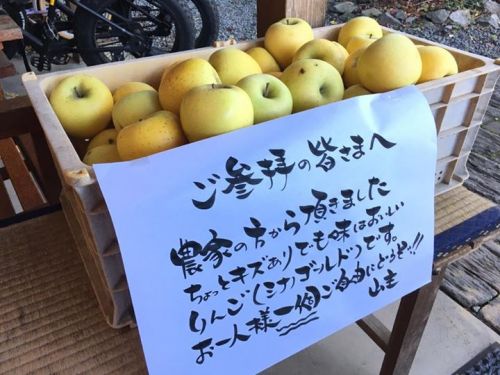 ご参拝の皆さまへ
農家の方から頂きました
ちょっとキズありでも味はおいしい
りんご(ミナゴールド)です。
お一人様一個ご自由にどうぞ!!
山主